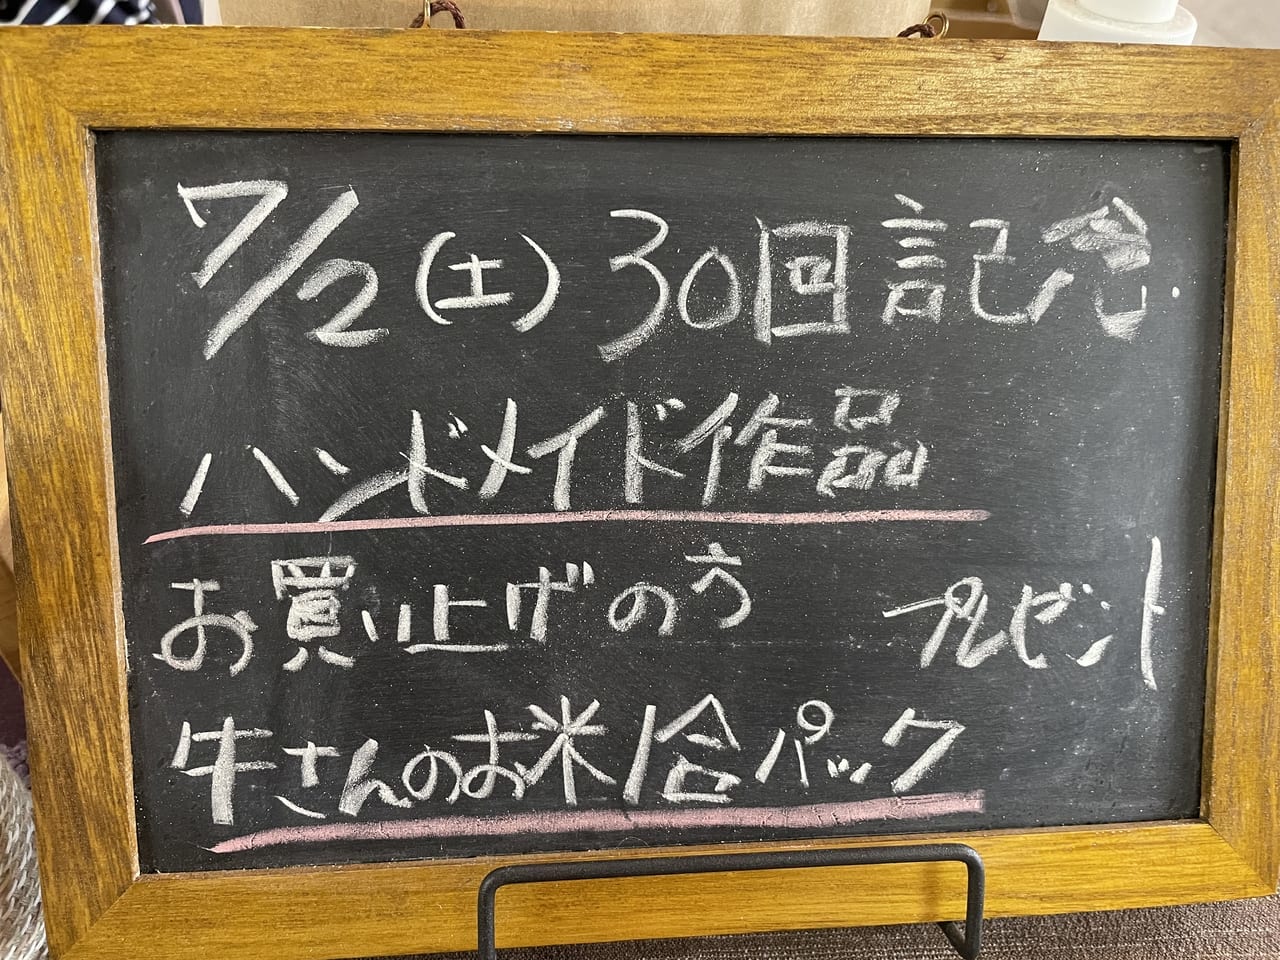 7/2(土)30回記念.
ハンドメイド作品
お買い上げの方 プレゼント
牛さんのお米1合パック